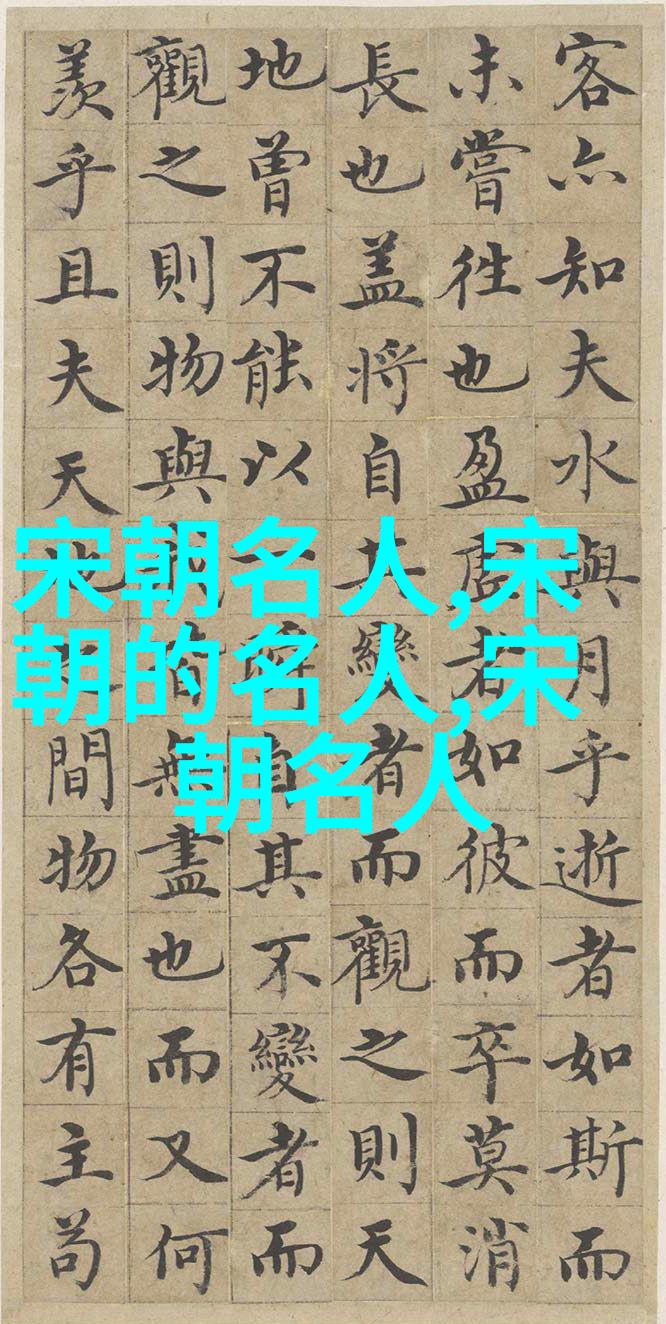 客亦知夫水與月乎逝者如斯而
未嘗往也盈虛者如彼而卒莫消
長也盖將自其變者而觀之則天
地曾不能以一瞬自其不變者而
觀之則物與我皆無盡也而又何
羨乎且夫天地之間物各有主苟
宋朝名人,宋
朝的名人,宋
朝名人